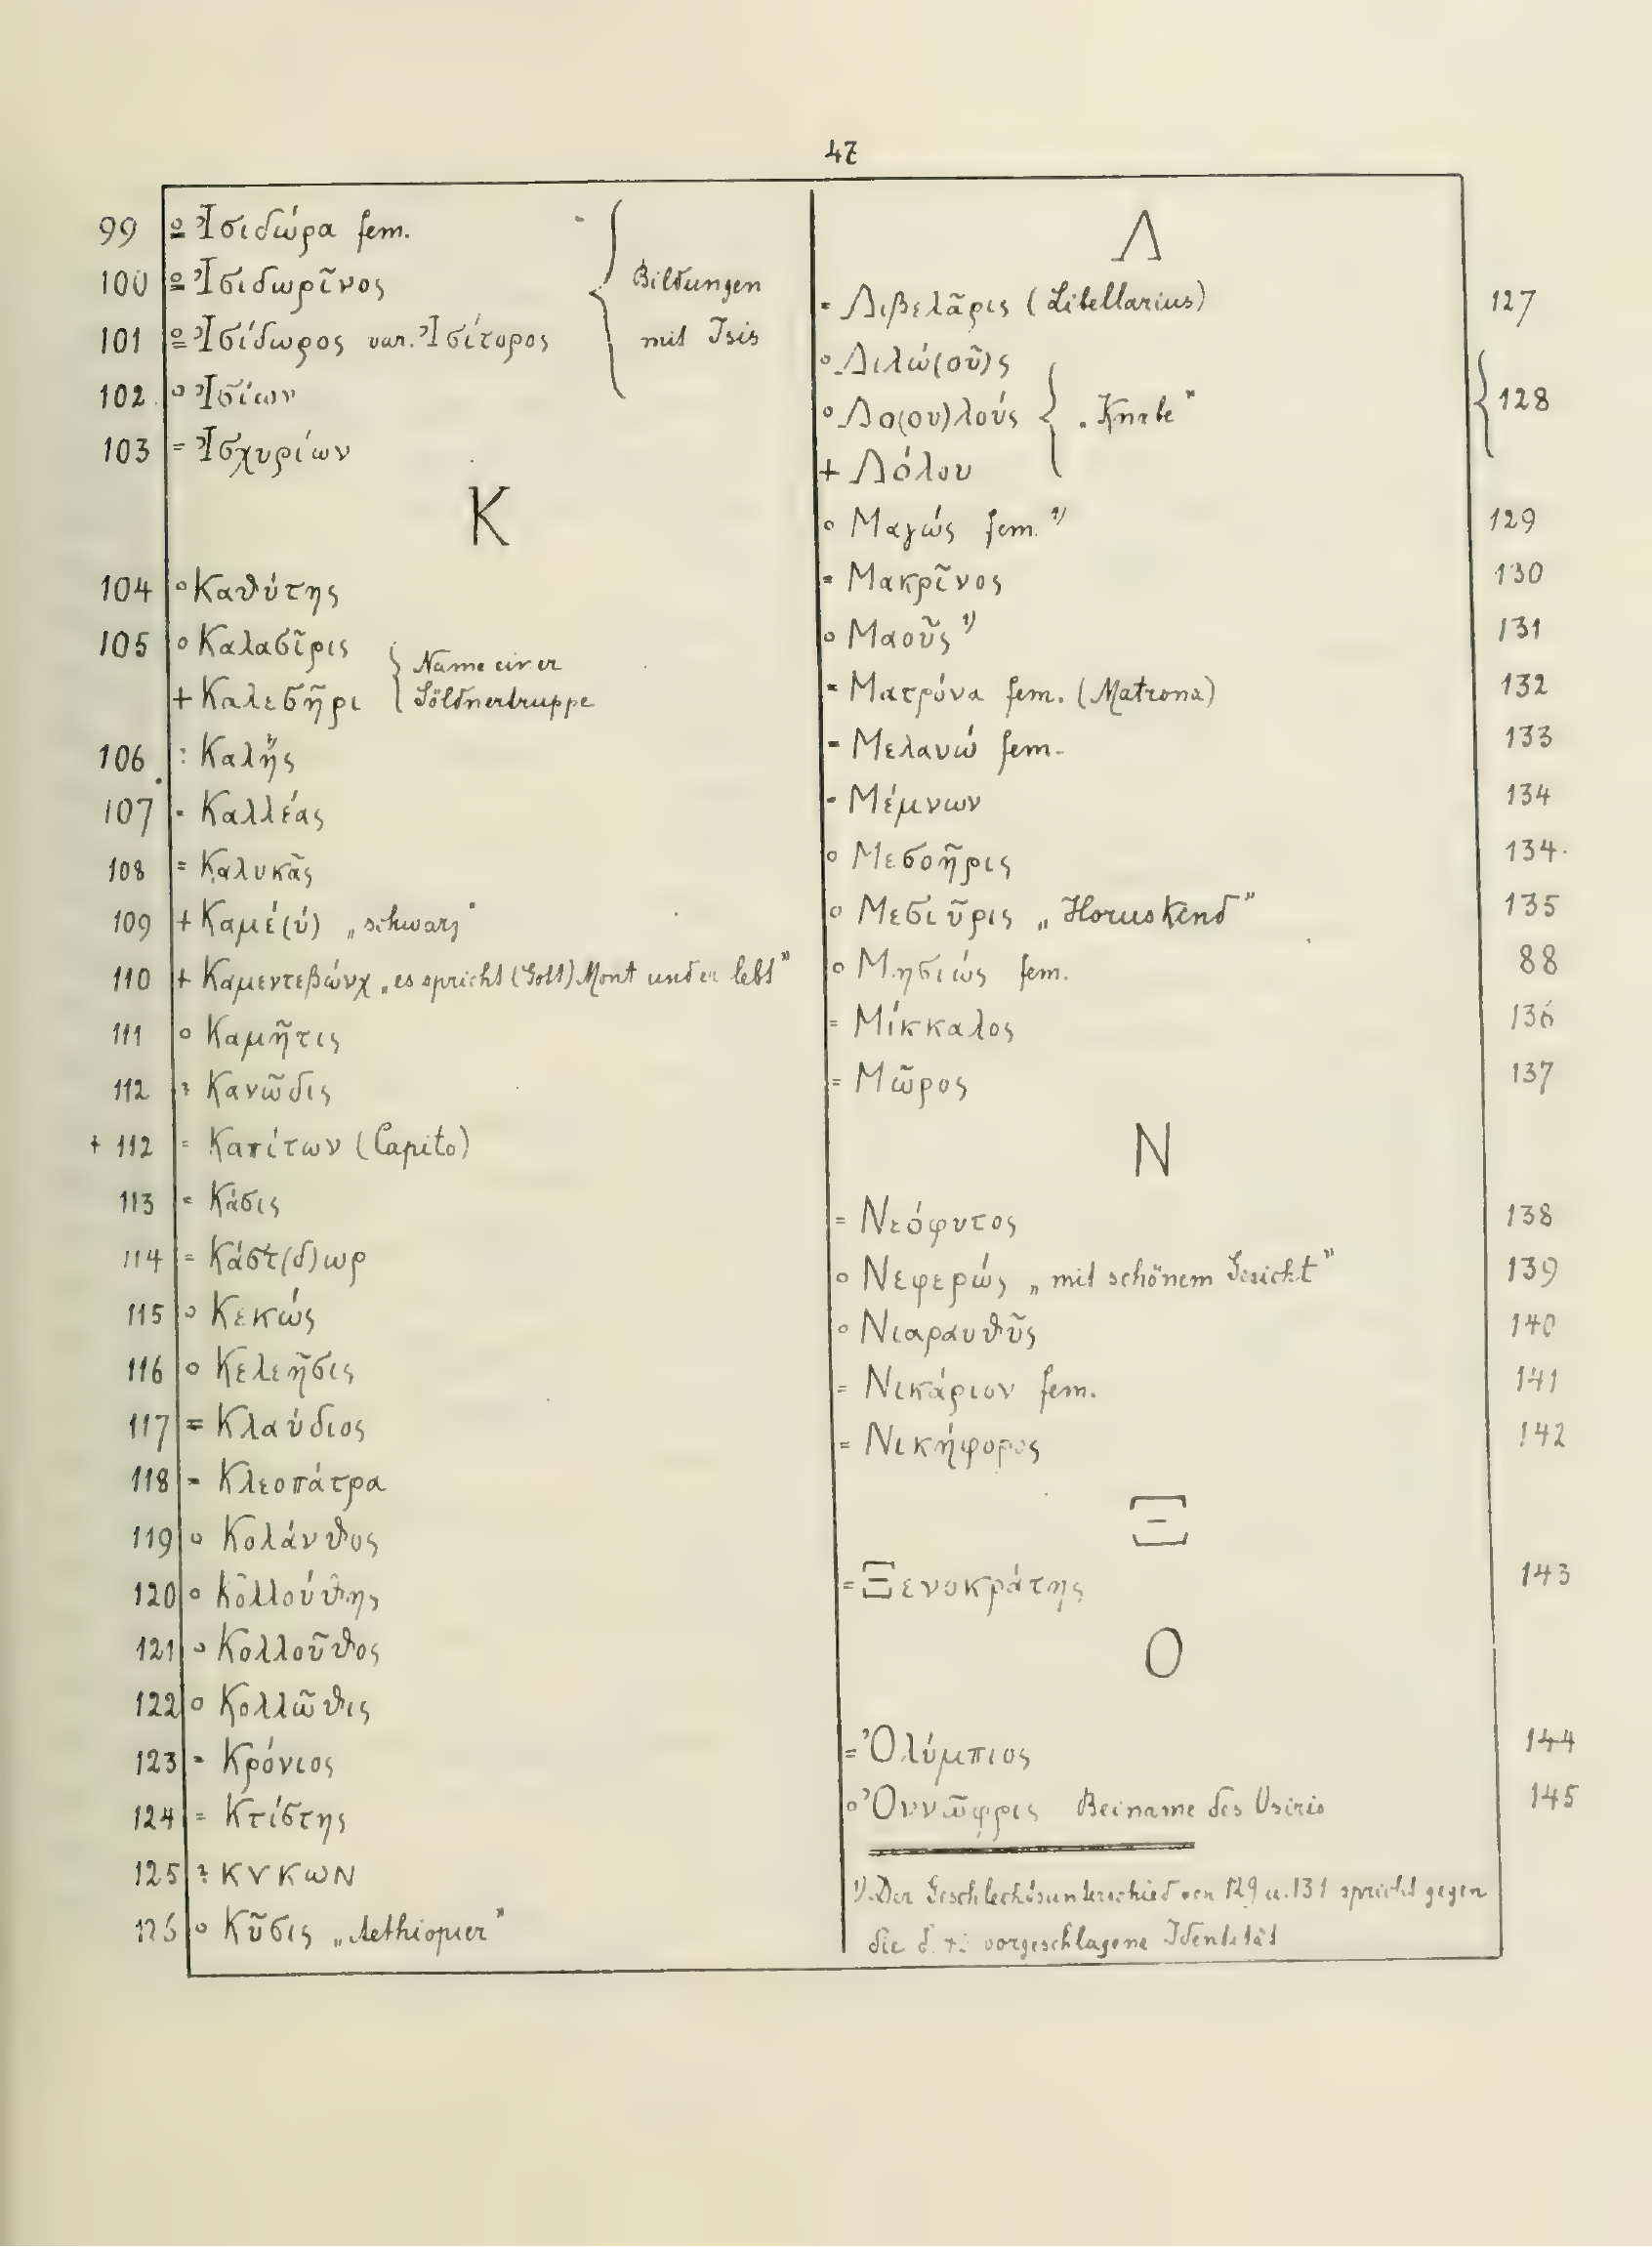 47
99 ⸗ Ἰσιδώρα fem.
100 ⸗ Ἰσιδωρῖνος
101 ⸗ Ἰσίδωρος var. Ἰσίτορος
Bildungen
mit Isis
102 ∘ Ἰσίων
103 = Ἰσχυρίων
K
104 ∘ Καθύτης
105 ∘ Καλασῖρις
+ Καλεσῆρι
Name einer
Söldnertruppe
106 : Καλῆς
107 = Καλλέας
108 = Καλυκᾶς
109 + Καμέ(ύ) „schwarz"
110 + Καμεντεβώνχ „es spricht (Gott) Mont und er lebt"
111 ∘ Καμῆτις
112 ? Κανῶδις
+ 112 = Καπίτων (Capito)
113 = Κάσις
114 = Κάστ(δ)ωρ
115 ∘ Κεκώς
116 ∘ Κελεῆσις
117 = Κλαύδιος
118 = Κλεοπάτρα
119 ∘ Κολάνθος
120 ∘ Κολλούθης
121 ∘ Κολλοῦθος
122 ∘ Κολλῶθις
123 = Κρόνιος
124 = Κτίστης
125 ? ΚVΚωΝ
126 ∘ Κῦσις „Aethiopier"
Λ
= Λιβελᾶρις (Libellarius) 127
∘ Λιλώ(οῦ)ς
∘ Λο(ου)λούς „Knabe" 128
+ Λόλου
∘ Μαγώς fem. ¹⁾ 129
= Μακρῖνος 130
∘ Μαοῦς ¹⁾ 131
= Ματρόνα fem. (Matrona) 132
= Μελανώ fem. 133
= Μέμνων 134
∘ Μεσοῆρις 134.
∘ Μεσιῦρις „Horuskind" 135
∘ Μησιώς fem. 88
= Μίκκαλος 136
= Μῶρος 137
N
= Νεόφυτος 138
∘ Νεφερώς „mit schönem Gesicht" 139
∘ Νιαραυθῦς 140
= Νικάριον fem. 141
= Νικήφορος 142
Ξ
= Ξενοκράτης 143
O
= Ὀλύμπιος 144
∘ Ὀννῶφρις Beiname des Osiris 145
¹⁾ Der Geschlechtsunterschied von 129 u. 131 spricht gegen
die vorgeschlagene Identität